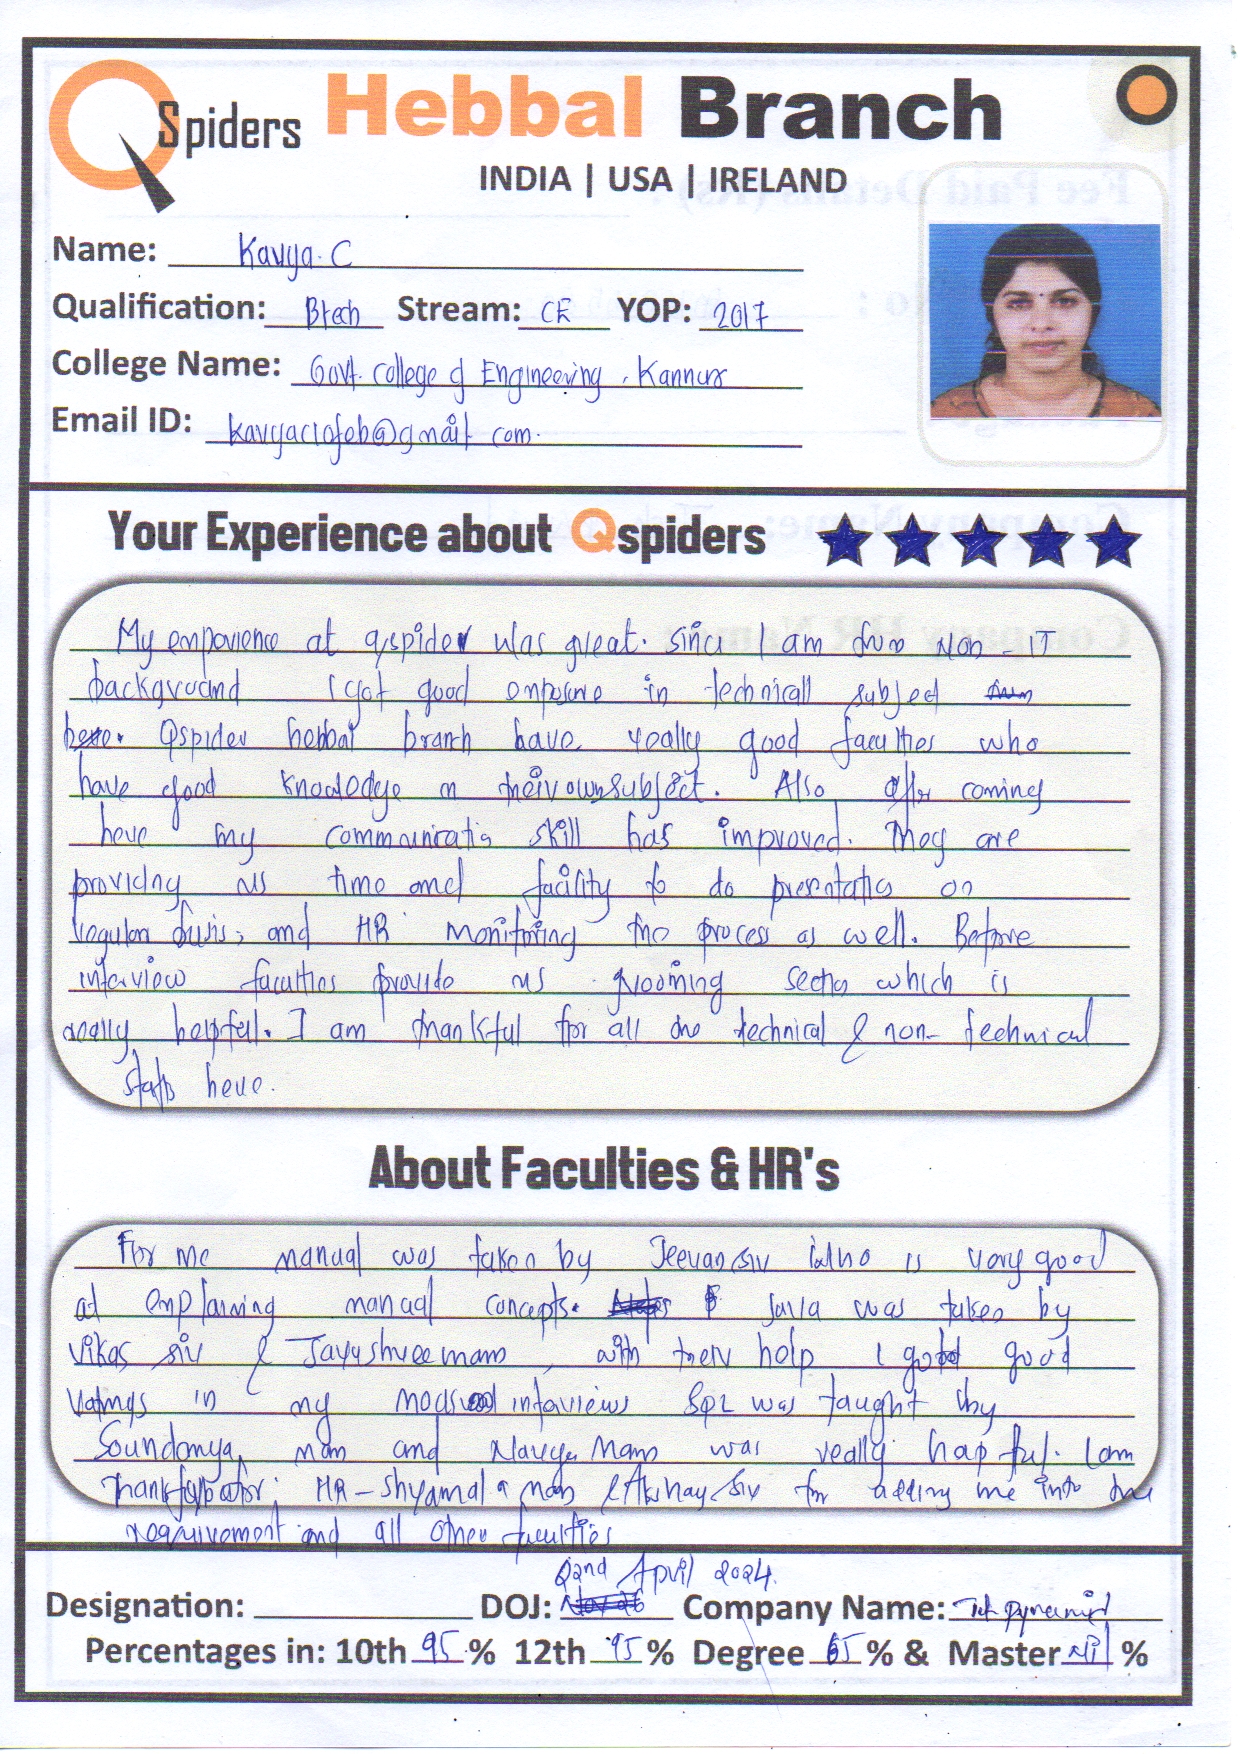 Qspiders Hebbal Branch
INDIA | USA | IRELAND
Name: Kavya. C
Qualification: Btech Stream: CE YOP: 2017
College Name: Govt. College of Engineering, Kannur
Email ID: kavyac10feb@gmail.com.
Your Experience about Qspiders
My experience at qspider was great. Since I am from Non - IT
background I got good exposure in technical subject
here. Qspider hebbal branch have really good faculties who
have good knowledge on their own subject. Also after coming
here my communication skill has improved. They are
providing us time and facility to do presentation on
regular basis, and HR monitoring the process as well. Before
interview faculties provide us grooming section which is
really helpful. I am thankful for all the technical & non-technical
staffs here.
About Faculties & HR's
For me manual was taken by Jeevan sir who is very good
at explaining manual concepts. Java was taken by
Vikas sir & Jayashree mam, with their help I got good
ratings in my mock interviews SQL was taught by
Soundarya mam and Navya Mam was really helpful. I am
thankful for HR - Shyamala mam & Akshay sir for adding me into the
requirement and all other faculties
22nd April 2024.
Designation: DOJ: Company Name: Tek pyramid
Percentages in: 10th 95.% 12th 95% Degree 65% & Master Nil %